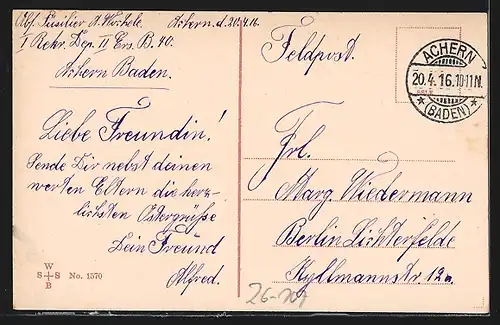 Abs. Füsilier A. Workele. Achern. d. 20.4.16.
I Rekr. Dep. II Ers. B. 40.
Achern Baden.
Liebe Freundin!
Sende Dir nebst deinen
werten Eltern die herz-
lichsten Ostergrüsse
Dein Freund
Alfred.
W
S S
B
No. 1570
Feldpost.
ACHERN
20.4.16.10-11N.
(BADEN)
Frl.
Marg. Wiedermann
Berlin Lichterfelde
Kyllmannstr 12a.